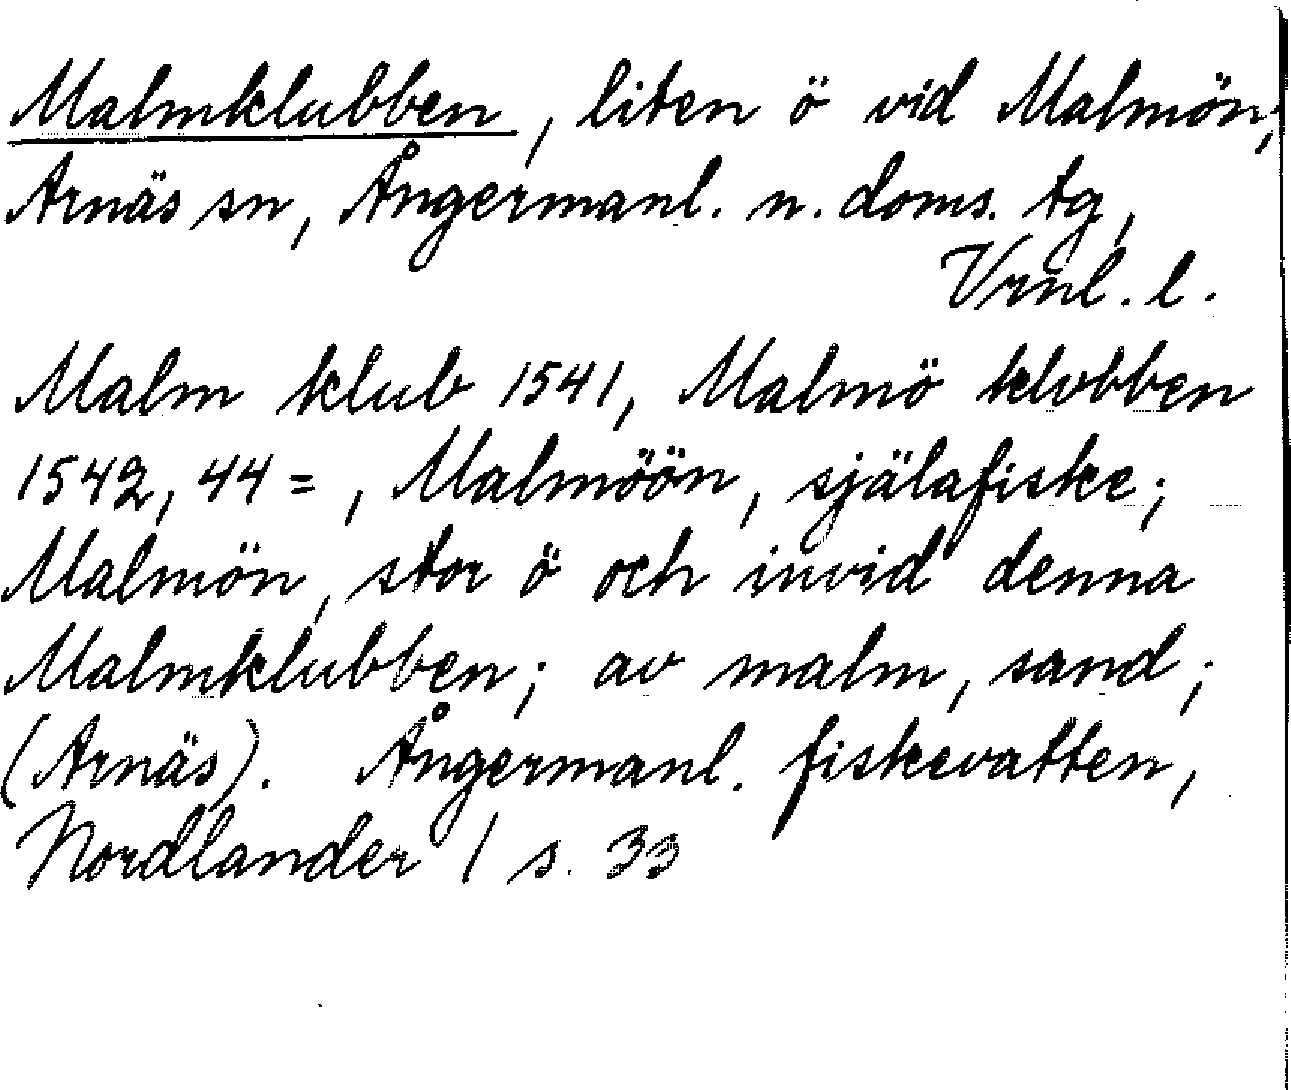 Malmklubben, liten ö vid Malmön;
Arnäs sn, Ångermanl. n. doms. tg,
Vrnl. l.
Malm klub 1541, Malmö klvbben
1542, 44 = , Malmöön, själafiske;
Malmön, stor ö och invid denna
Malmklubben; av malm, sand;
(Arnäs). Ångermanl. fiskevatten,
Nordlander / s. 33